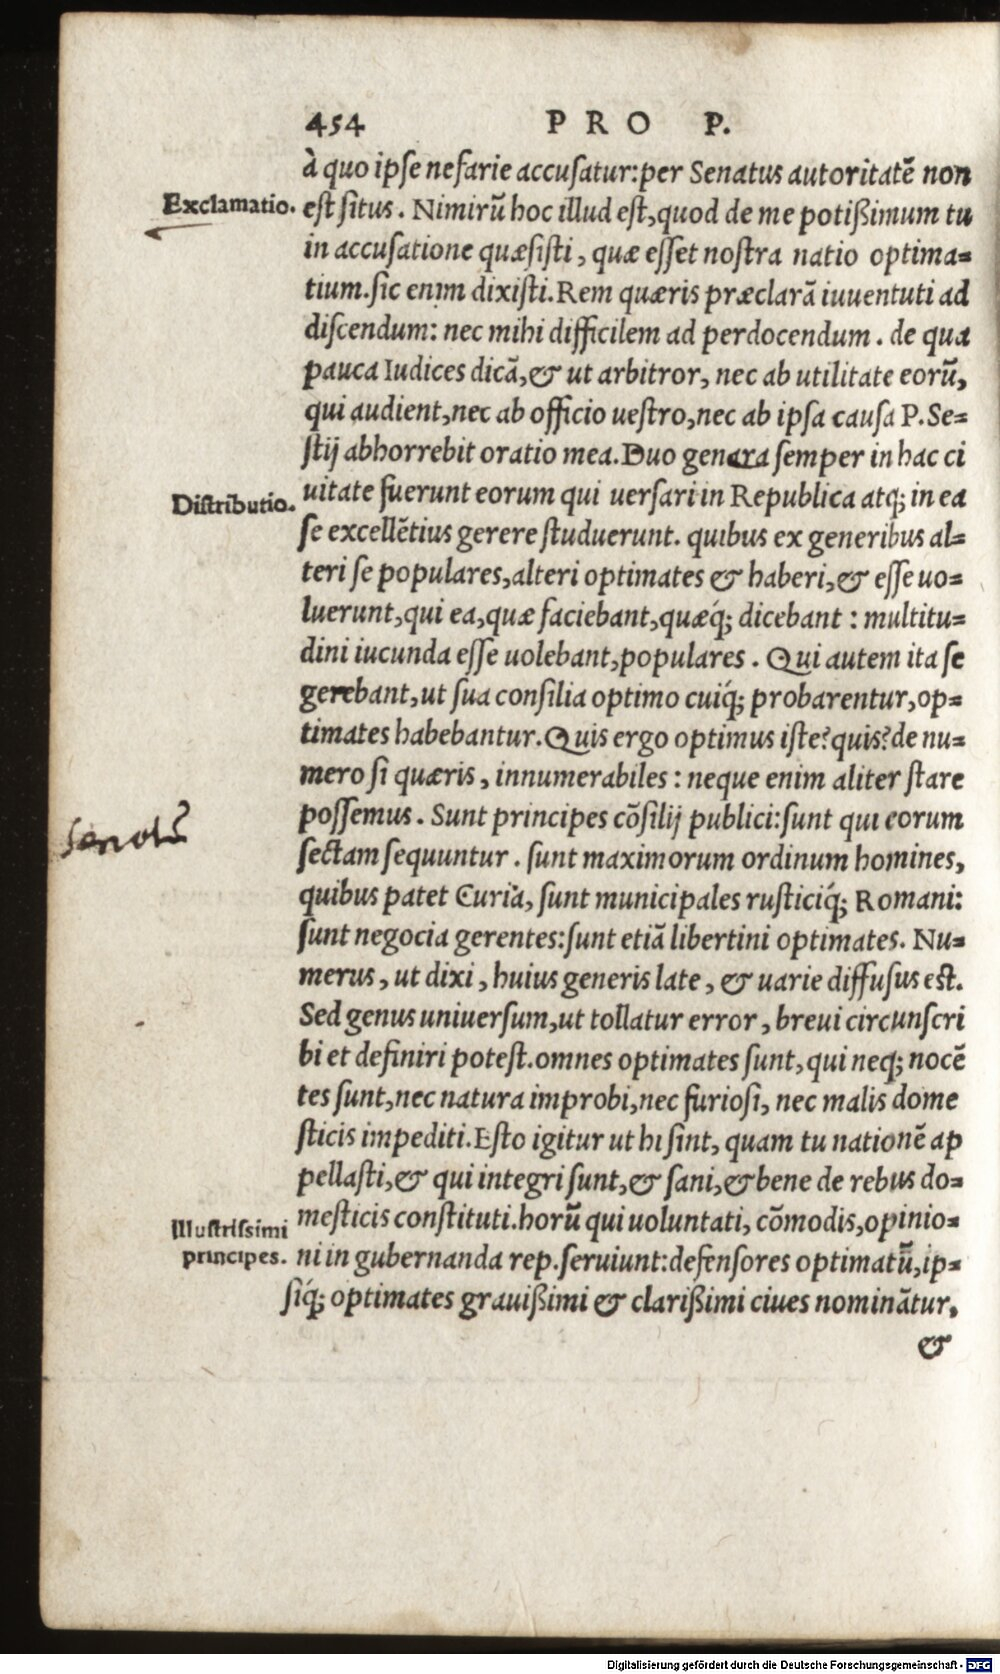 454 PRO P.
à quo ipse nefarie accusatur:per Senatus autoritatē non
Exclamatio.
est situs. Nimirū hoc illud est,quod de me potißimum tu
in accusatione quæsisti, quæ esset nostra natio optima=
tium.sic enim dixisti.Rem quæris præclarā iuuentuti ad
discendum: nec mihi difficilem ad perdocendum. de qua
pauca Iudices dicā,& ut arbitror, nec ab utilitate eorū,
qui audient,nec ab officio uestro,nec ab ipsa causa P.Se=
stij abhorrebit oratio mea.Duo genera semper in hac ci
Distributio.
uitate fuerunt eorum qui uersari in Republica atq; in ea
se excellētius gerere studuerunt. quibus ex generibus al=
teri se populares,alteri optimates & haberi,& esse uo=
luerunt,qui ea,quæ faciebant,quæq́; dicebant: multitu=
dini iucunda esse uolebant,populares. Qui autem ita se
gerebant,ut sua consilia optimo cuiq́; probarentur,op=
timates habebantur.Quis ergo optimus iste?quis?de nu=
mero si quæris, innumerabiles: neque enim aliter stare
possemus. Sunt principes cōsilij publici:sunt qui eorum
sectam sequuntur. sunt maximorum ordinum homines,
quibus patet Curia, sunt municipales rusticiq́; Romani:
sunt negocia gerentes:sunt etiā libertini optimates. Nu=
merus, ut dixi, huius generis late, & uarie diffusus est.
Sed genus uniuersum,ut tollatur error, breui circunscri
bi et definiri potest.omnes optimates sunt,qui neq; nocē
tes sunt,nec natura improbi,nec furiosi, nec malis dome
sticis impediti.Esto igitur ut hi sint, quam tu nationē ap
pellasti,& qui integri sunt,& sani,& bene de rebus do=
Illustrissimi
principes.
mesticis constituti.horū qui uoluntati, cōmodis,opinio=
ni in gubernanda rep.seruiunt:defensores optimatū,ip=
siq́; optimates grauißimi & clarißimi ciues nominātur,
&
Digitalisierung gefördert durch die Deutsche Forschungsgemeinschaft - DFG